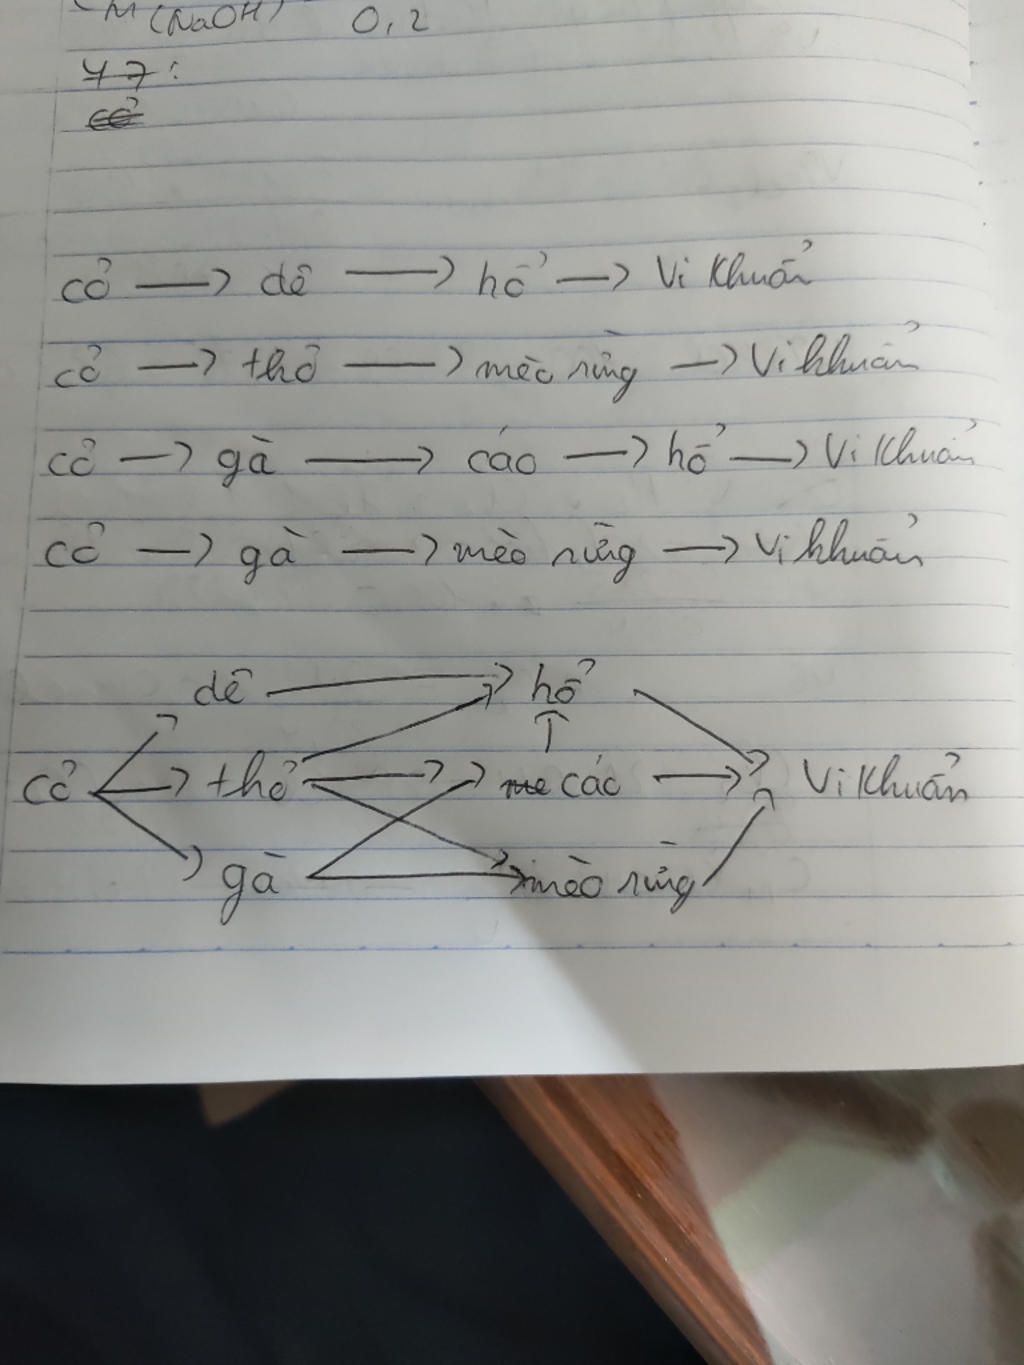 CM(NaOH) 0,2
47:
cỏ
cỏ → dê → hổ → Vi khuẩn
cỏ → thỏ → mèo rừng → Vi khuẩn
cỏ → gà → cáo → hổ → Vi khuẩn
cỏ → gà → mèo rừng → Vi khuẩn
dê → hổ
cỏ → thỏ → me cáo → Vi khuẩn
gà → mèo rừng